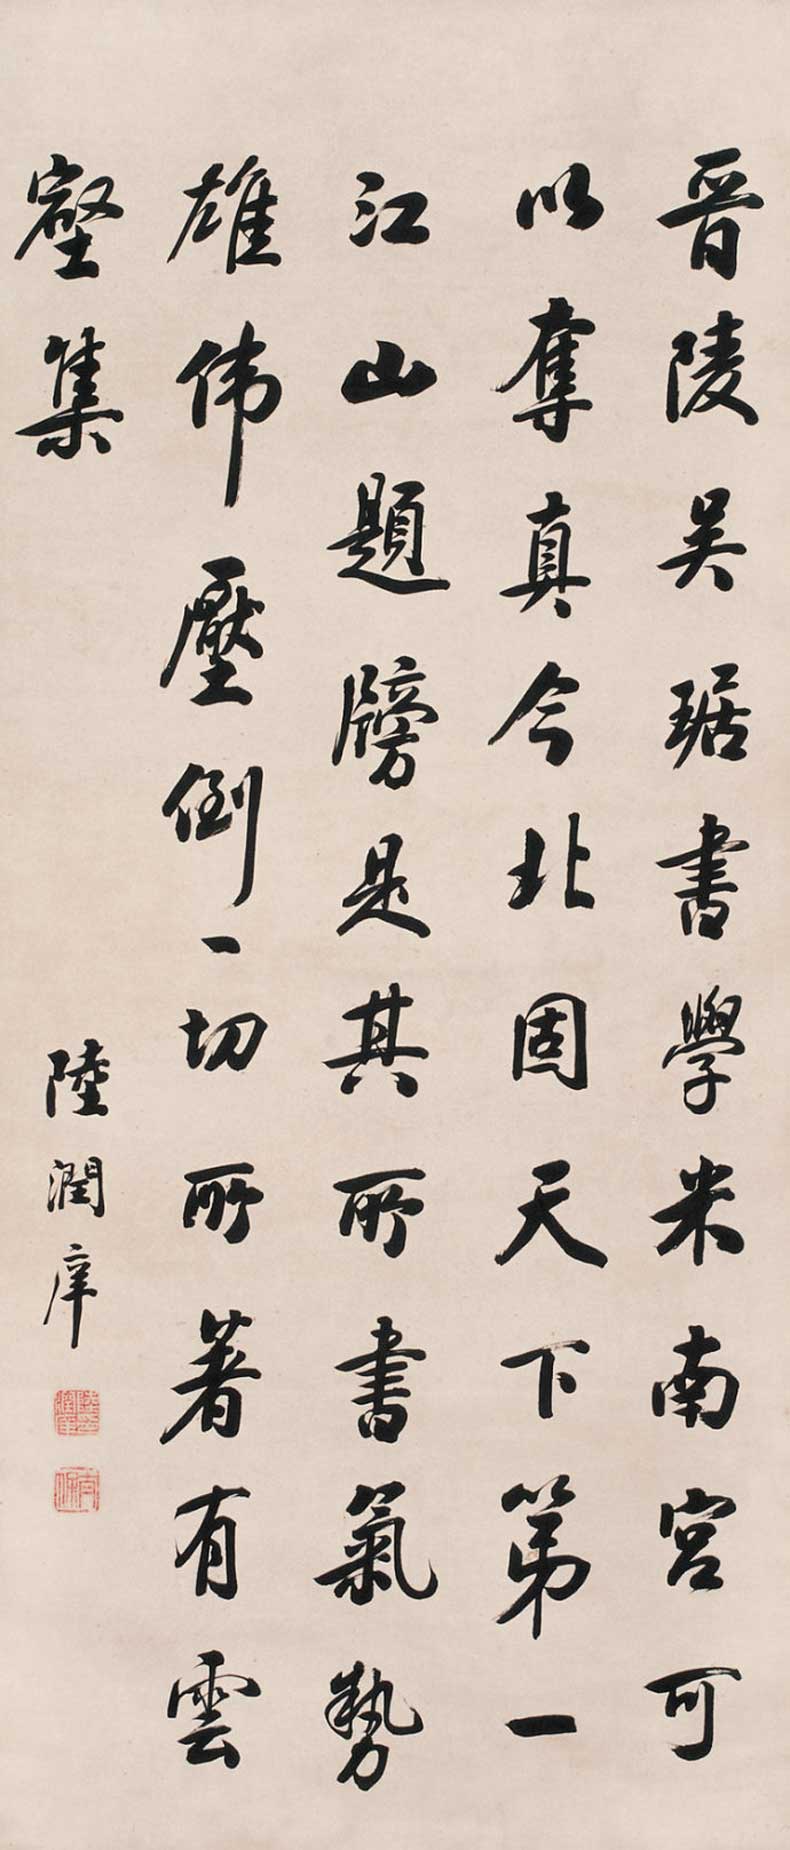 晋陵吴琚書學米南宫可
以奪真今北固天下第一
江山題牓是其所書氣勢
雄偉壓倒一切所著有雲
壑集
陸潤庠